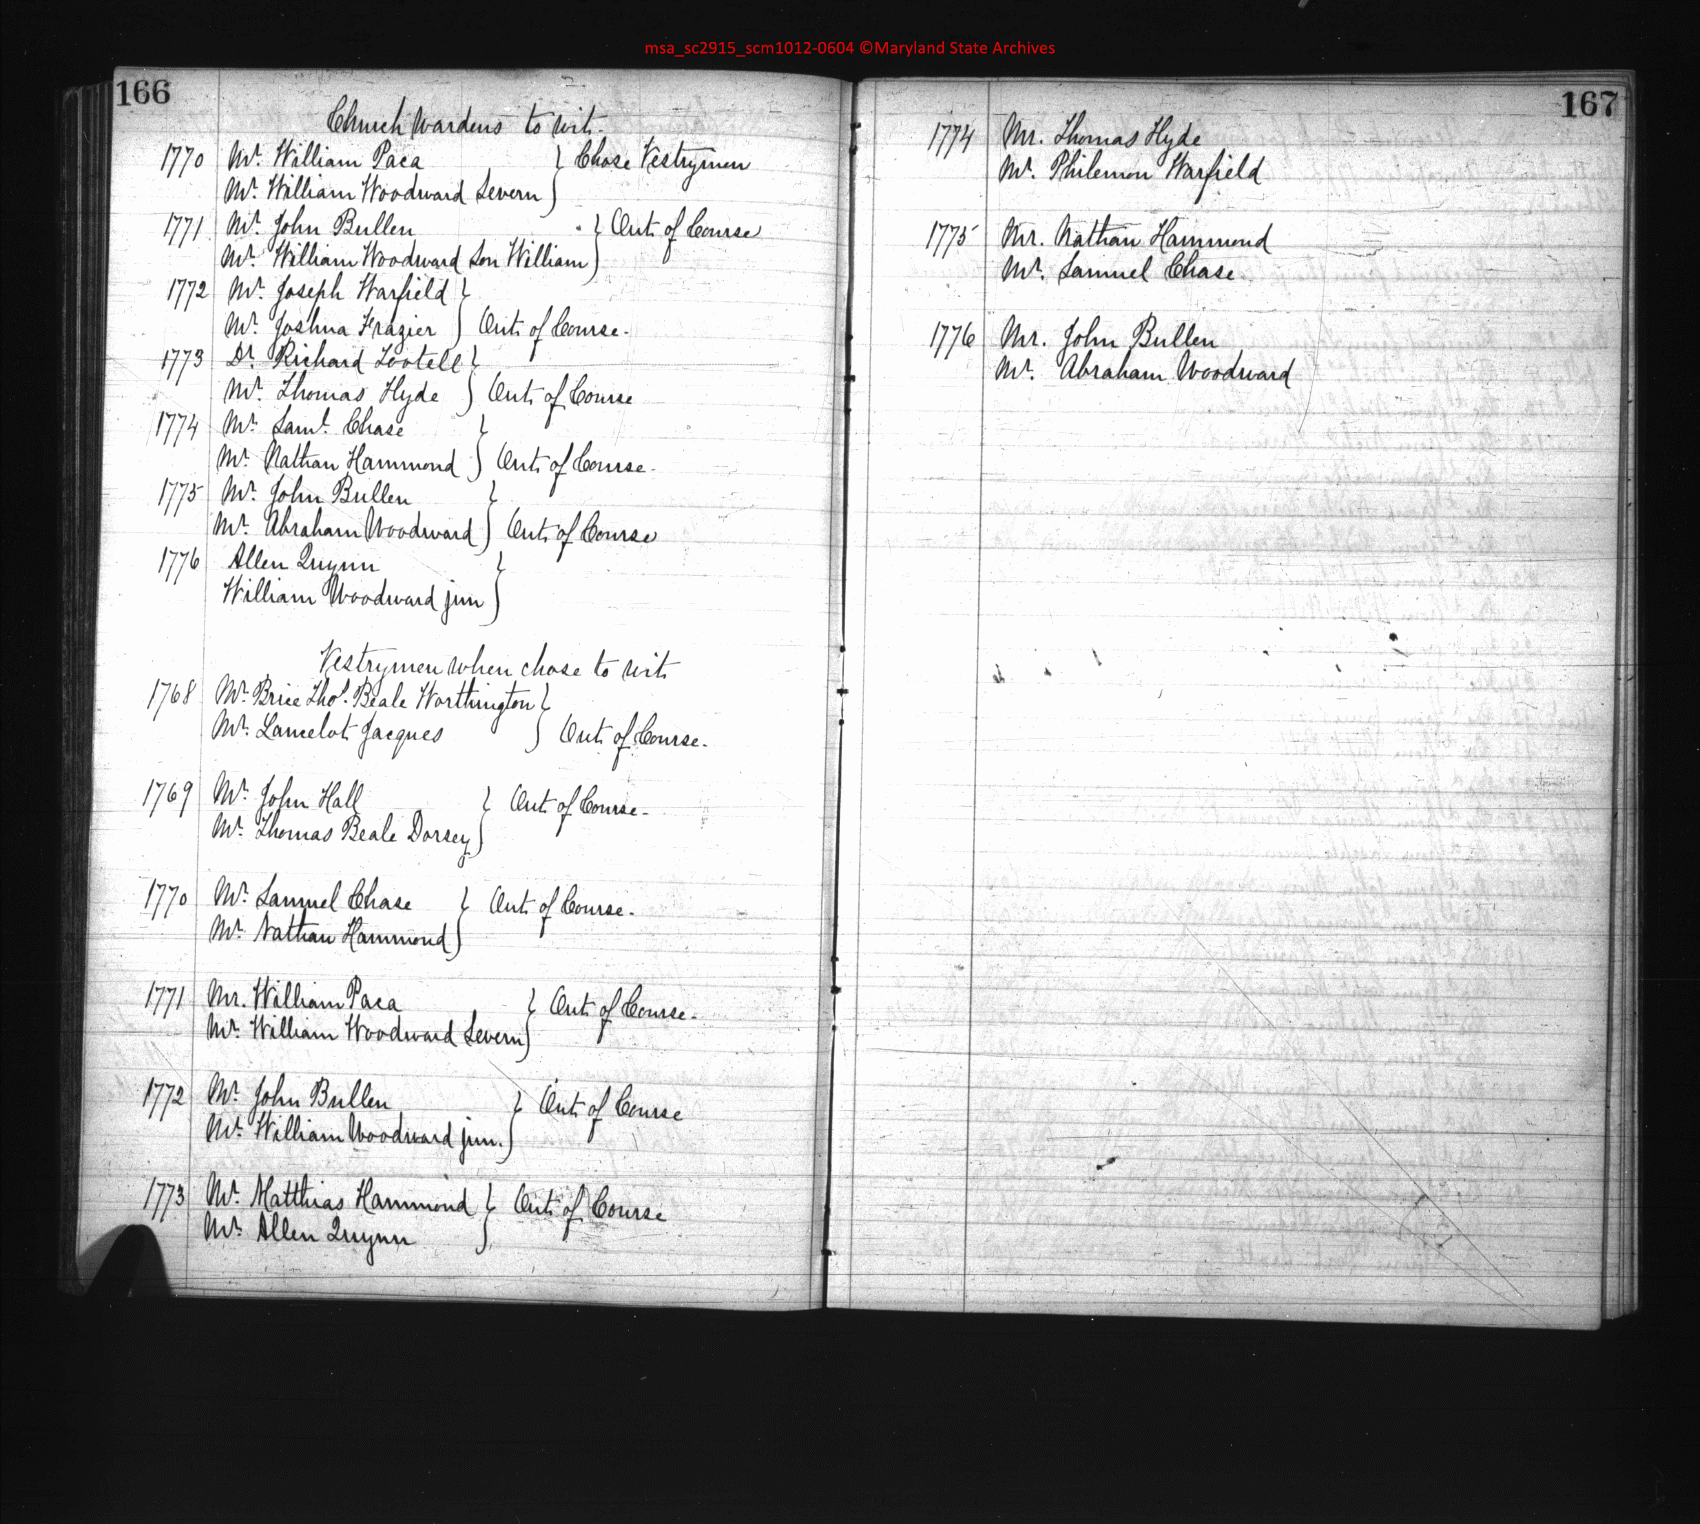 msa_sc2915_scm1012-0604 ©Maryland State Archives
166
Church Wardens to wit.
1770 Mr. William Paca } Chose Vestrymen
Mr. William Woodward Severn
1771 Mr. John Bullen } Out of Course
Mr. William Woodward Son William
1772 Mr. Joseph Warfield }
Mr. Joshua Frazier Out of Course.
1773 Dr. Richard Tootell }
Mr. Thomas Hyde Out of Course
1774 Mr. Saml. Chase }
Mr. Nathan Hammond Out of Course.
1775 Mr. John Bullen }
Mr. Abraham Woodward Out of Course
1776 Allen Quynn }
William Woodward jun
Vestrymen when chose to wit
1768 Mr. Brice Tho.s Beale Worthington }
Mr. Lancelot Jacques Out of Course.
1769 Mr. John Hall } Out of Course.
Mr. Thomas Beale Dorsey
1770 Mr. Samuel Chase } Out of Course.
Mr. Nathan Hammond
1771 Mr. William Paca } Out of Course.
Mr. William Woodward Severn
1772 Mr. John Bullen } Out of Course
Mr. William Woodward jun.
1773 Mr. Matthias Hammond } Out of Course
Mr. Allen Quynn
167
1774 Mr. Thomas Hyde
Mr. Philemon Warfield
1775 Mr. Nathan Hammond
Mr. Samuel Chase.
1776 Mr. John Bullen
Mr. Abraham Woodward